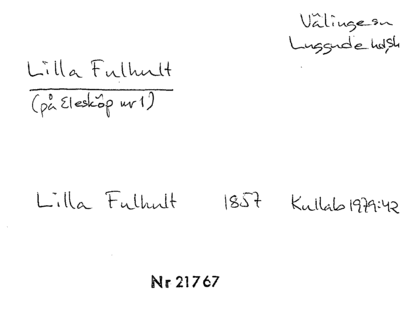 Välinge sn
Luggude hd, Sk
Lilla Fulhult
(på Elesköp nr 1)
Lilla Fulhult 1857 Kullab 1979:42
Nr 21767